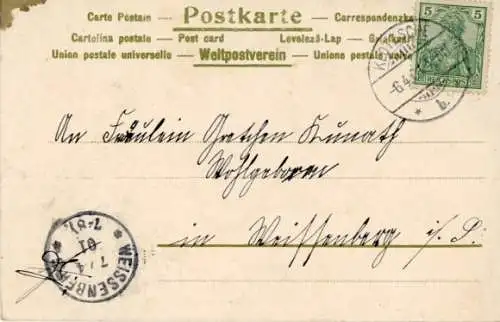 Carte Postale — Postkarte — Correspondenzka
Cartolina postale — Post card Levelező-Lap —
Union postale universelle — Weltpostverein — Unione postale
5 5
-6.4
b.
An Fräulein Gretchen Kunath
Wohlgeboren
in Weissenberg i/S.
* WEISSENBERG *
7/4
01
7-8V.